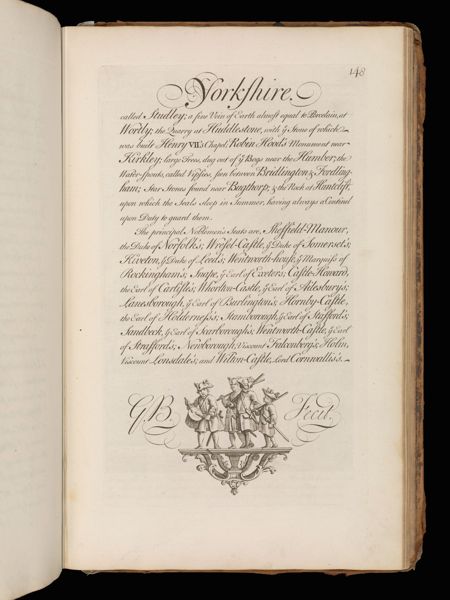 148
Yorkshire.
called Studley; a fine Vein of Earth almost equal to Porcelain, at
Wortly; the Quarry at Huddlestone, with ye Stone of which
was built Henry VII's Chapel; Robin Hood's Monument near
Kirkley; large Trees, dug out of ye Bogs near the Humber; the
Water-spouts, called Vipsies, seen between Bridlington & Fordling-
ham; Star Stones found near Bugthorp; & the Rock at Huntcliff,
upon which the Seals sleep in Summer, having always a Centinel
upon Duty to guard them.
The principal Noblemen's Seats are, Sheffield-Manour,
the Duke of Norfolk's; Wresel-Castle, ye Duke of Somerset's;
Kiveton, ye Duke of Leed's; Wentworth-house, ye Marquiss of
Rockingham's; Snape, ye Earl of Exeter's; Castle-Howard,
the Earl of Carlisle's; Whorlton-Castle, ye Earl of Ailesbury's;
Lanesborough, ye Earl of Burlington's; Hornby-Castle,
the Earl of Holderness's; Stainborough, ye Earl of Stafford's;
Sandbeck, ye Earl of Scarborough's; Wentworth-Castle, ye Earl
of Strafford's; Newborough, Viscount Falconberg's; Holm,
Viscount Lonsdale's; and Wilton-Castle, Lord Cornwallis's.
G.B. Fecit.